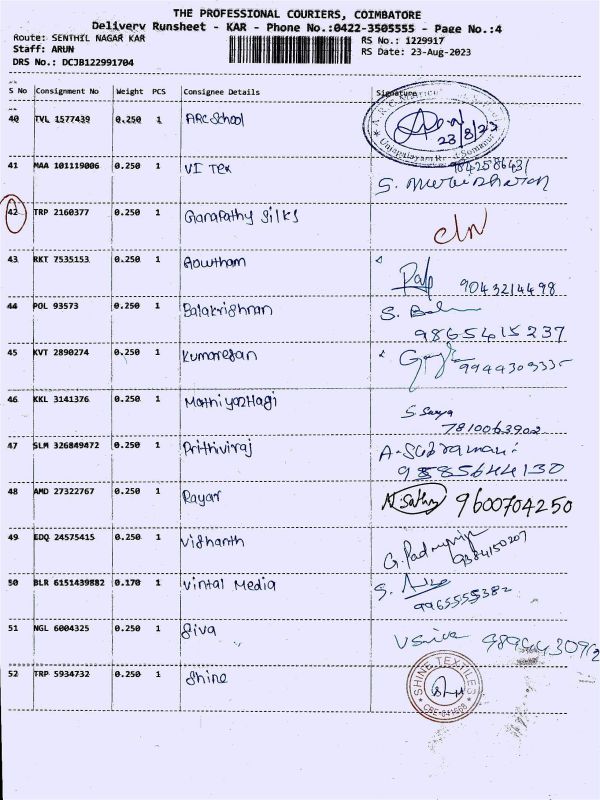 THE PROFESSIONAL COURIERS, COIMBATORE
Delivery Runsheet - KAR - Phone No.:0422-3505555 - Page No.:4
Route: SENTHIL NAGAR KAR
RS No.: 1229917
Staff: ARUN
RS Date: 23-Aug-2023
DRS No.: DCJB122991704
S No Consignment No Weight PCS Consignee Details Signature
40 TVL 1577439 0.250 1 ARC School
23/8/23
41 MAA 101119006 0.250 1 VI Tex 9842586431
S. Muralidharan
42 TRP 2160377 0.250 1 Ganapathy Silks
43 RKT 7535153 0.250 1 Gowtham
9043214498
44 POL 93573 0.250 1 Balakrishnan S.
9865415237
45 KVT 2890274 0.250 1 Kumaresan
46 KKL 3141376 0.250 1 Mathiyazhagi
S. Saranya
7810063902
47 SLM 326849472 0.250 1 Prithiviraj A. Subramani
9585644130
48 AMD 27322767 0.250 1 Rayar N. Sathy 9600704250
49 EDQ 24575415 0.250 1 Vishanth G.
9384150207
50 BLR 6151439882 0.170 1 Vintal Media S.
9965555382
51 NGL 6004325 0.250 1 Siva
52 TRP 5934732 0.250 1 Shine
SHINE TEXTILES